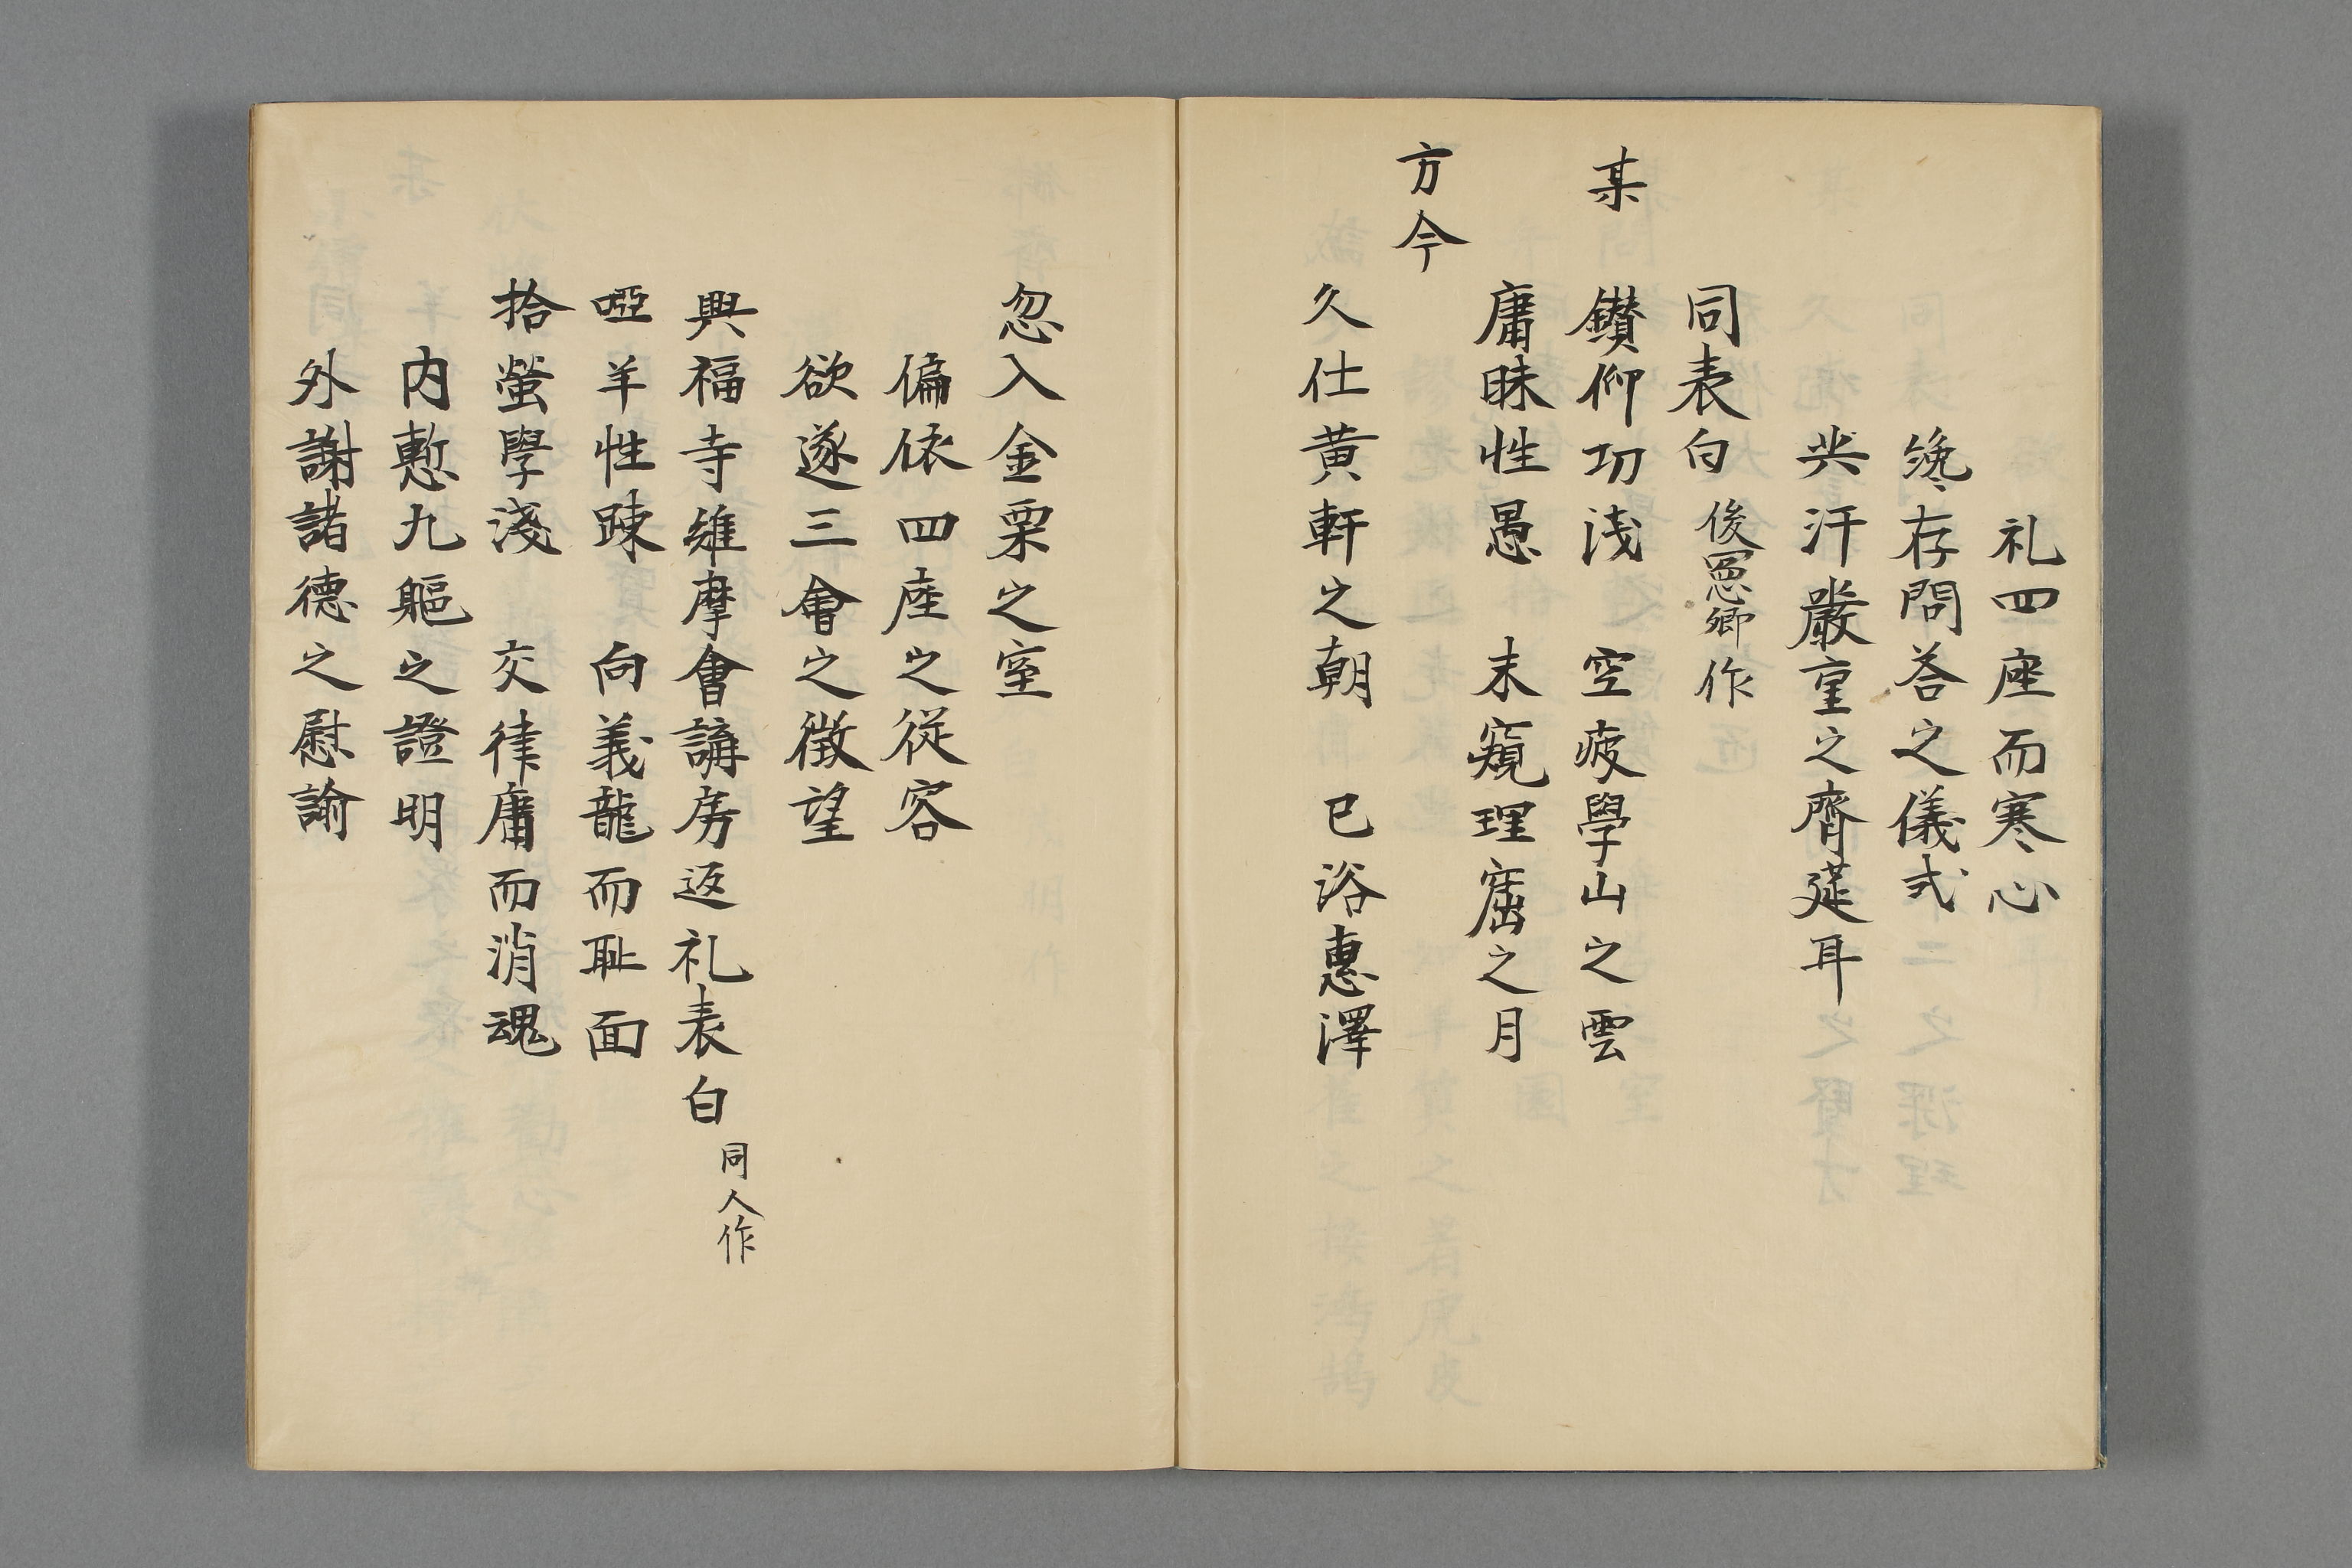 礼四座而寒心
纔存問荅之儀式
共汗嚴重之齊莚耳
同表白 俊憲卿作
某
鑚仰功浅 空疲學山之雲
庸昧性愚 未窺理窟之月
方今
久仕黄軒之朝 已浴惠澤
忽入金粟之室
偏依四座之従容
欲遂三會之徴望
興福寺維摩會講房返礼表白 同人作
啞羊性踈 向義龍而耻面
拾螢學淺 交律庸而消魂
内慙九軀之證明
外謝諸德之慰諭